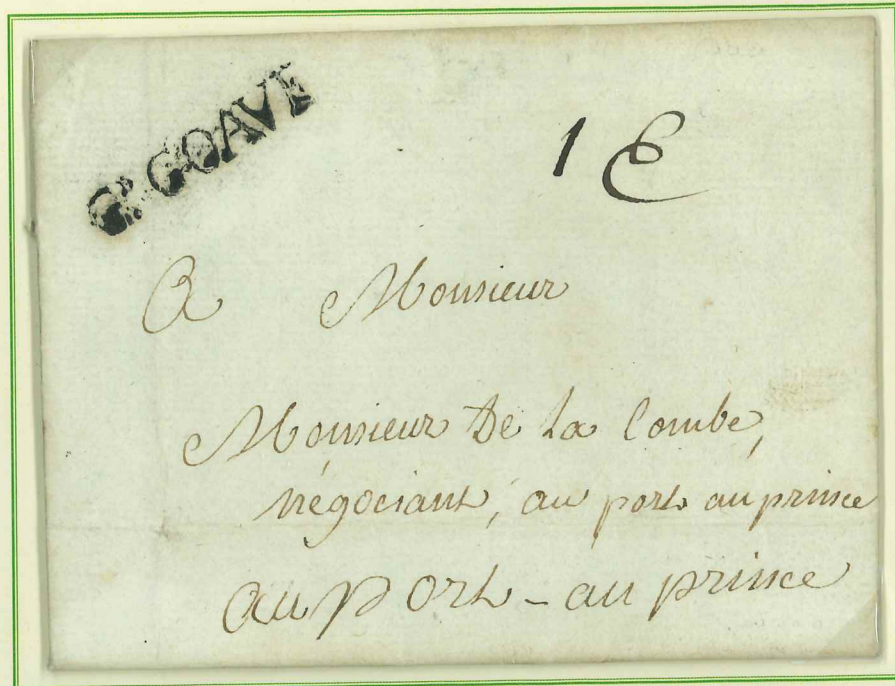 Gd. GOAVE
1 E
A Monsieur
Monsieur De La Combe,
négociant, au port au prince
au port - au prince